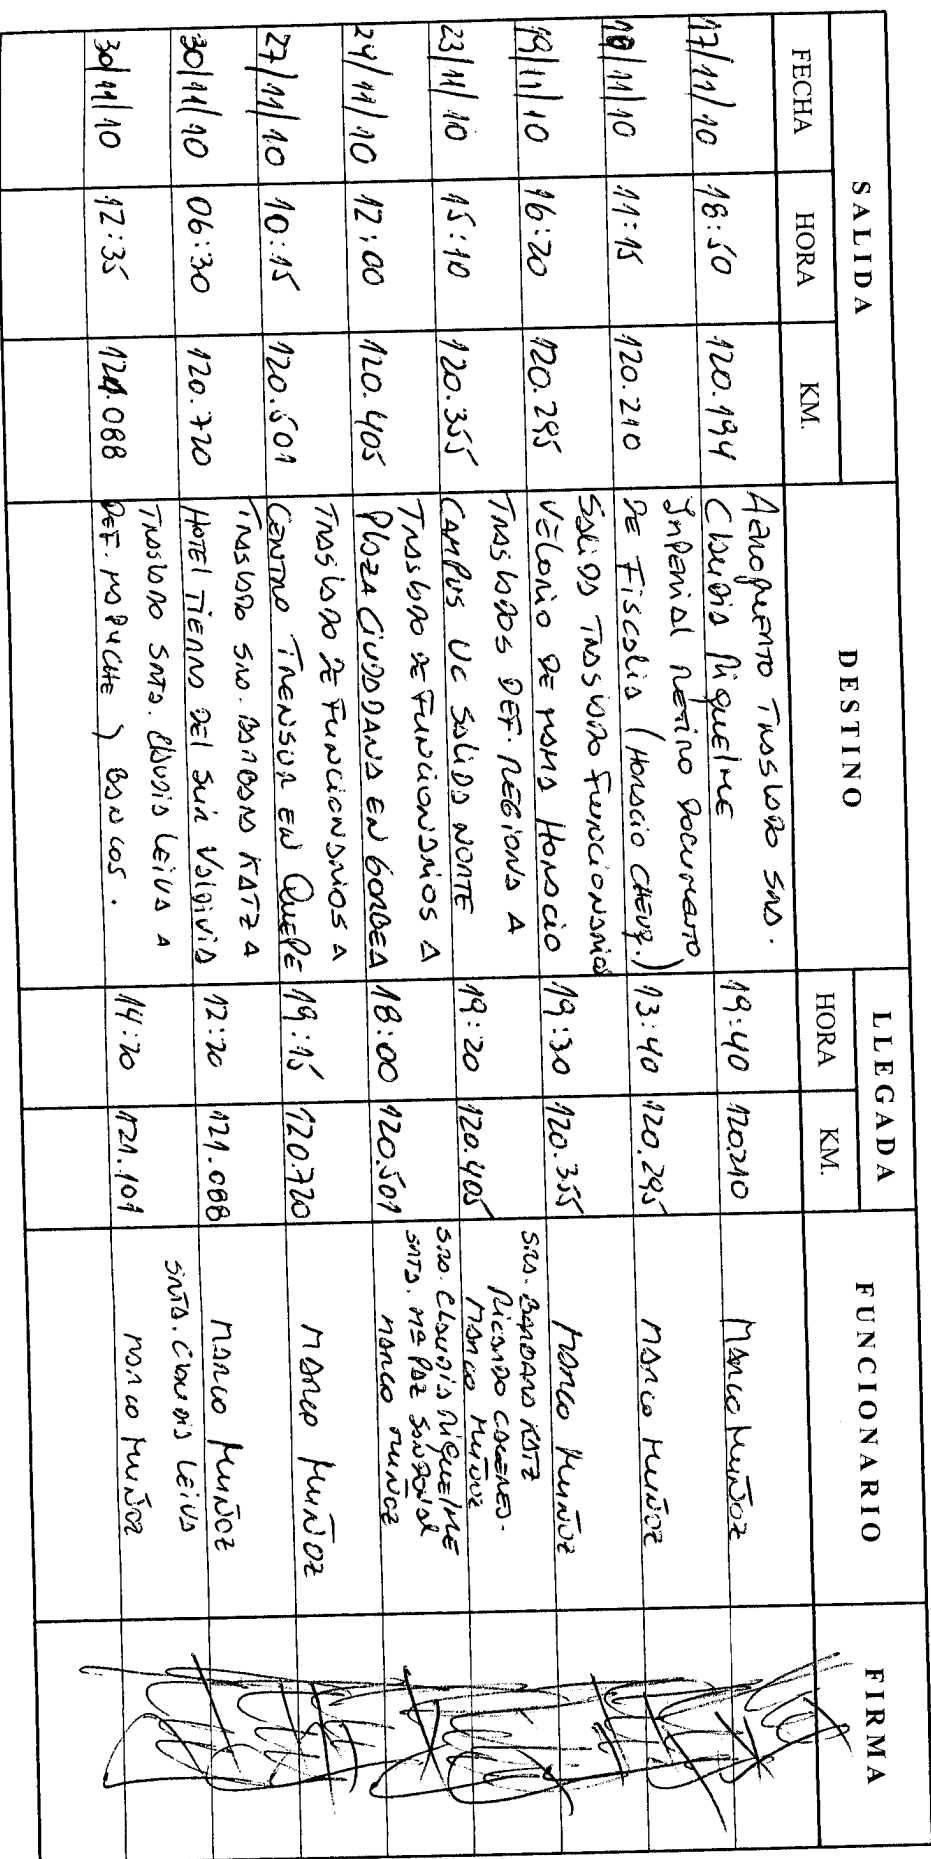 SALIDA DESTINO LLEGADA FUNCIONARIO FIRMA
FECHA HORA KM. HORA KM.
17/11/10 18:50 120.194 Aeropuerto Traslado Sra. Claudia Riquelme 19:40 120210 Marco Muñoz
11:15 120.210 Imperial Retiro Documento de Fiscalia (Horacio 13:40 120.295 Marco Muñoz
19/11/10 16:20 120.295 Salida Traslado Funcionarios Velorio de mamá Horacio 19:30 120.355 Marco Muñoz
23/11/10 15:10 120.355 Traslados Def. Regiona a Campus UC Salida Norte 19:20 120.405 Sra. Barbara Katz Ricardo Marco Muñoz
24/11/10 12:00 120.405 Traslado de Funcionarios a Plaza Ciudadana en Gorbea 18:00 120.501 Sra. Claudia Riquelme Srta. Mª Paz Sandoval Marco Muñoz
27/11/10 10:15 120.501 Traslado de Funcionarios a Centro Trensur en Quepe 19:15 120.720 Marco Muñoz
30/11/10 06:30 120.720 Traslado Sra. Barbara Katz a Hotel Tierra del Sur Valdivia 12:20 121.088 Marco Muñoz
30/11/10 12:35 121.088 Traslado Srta. Claudia Leiva a Def. Mapuche y Bancos. 14:20 121.101 Srta. Claudia Leiva Marco Muñoz